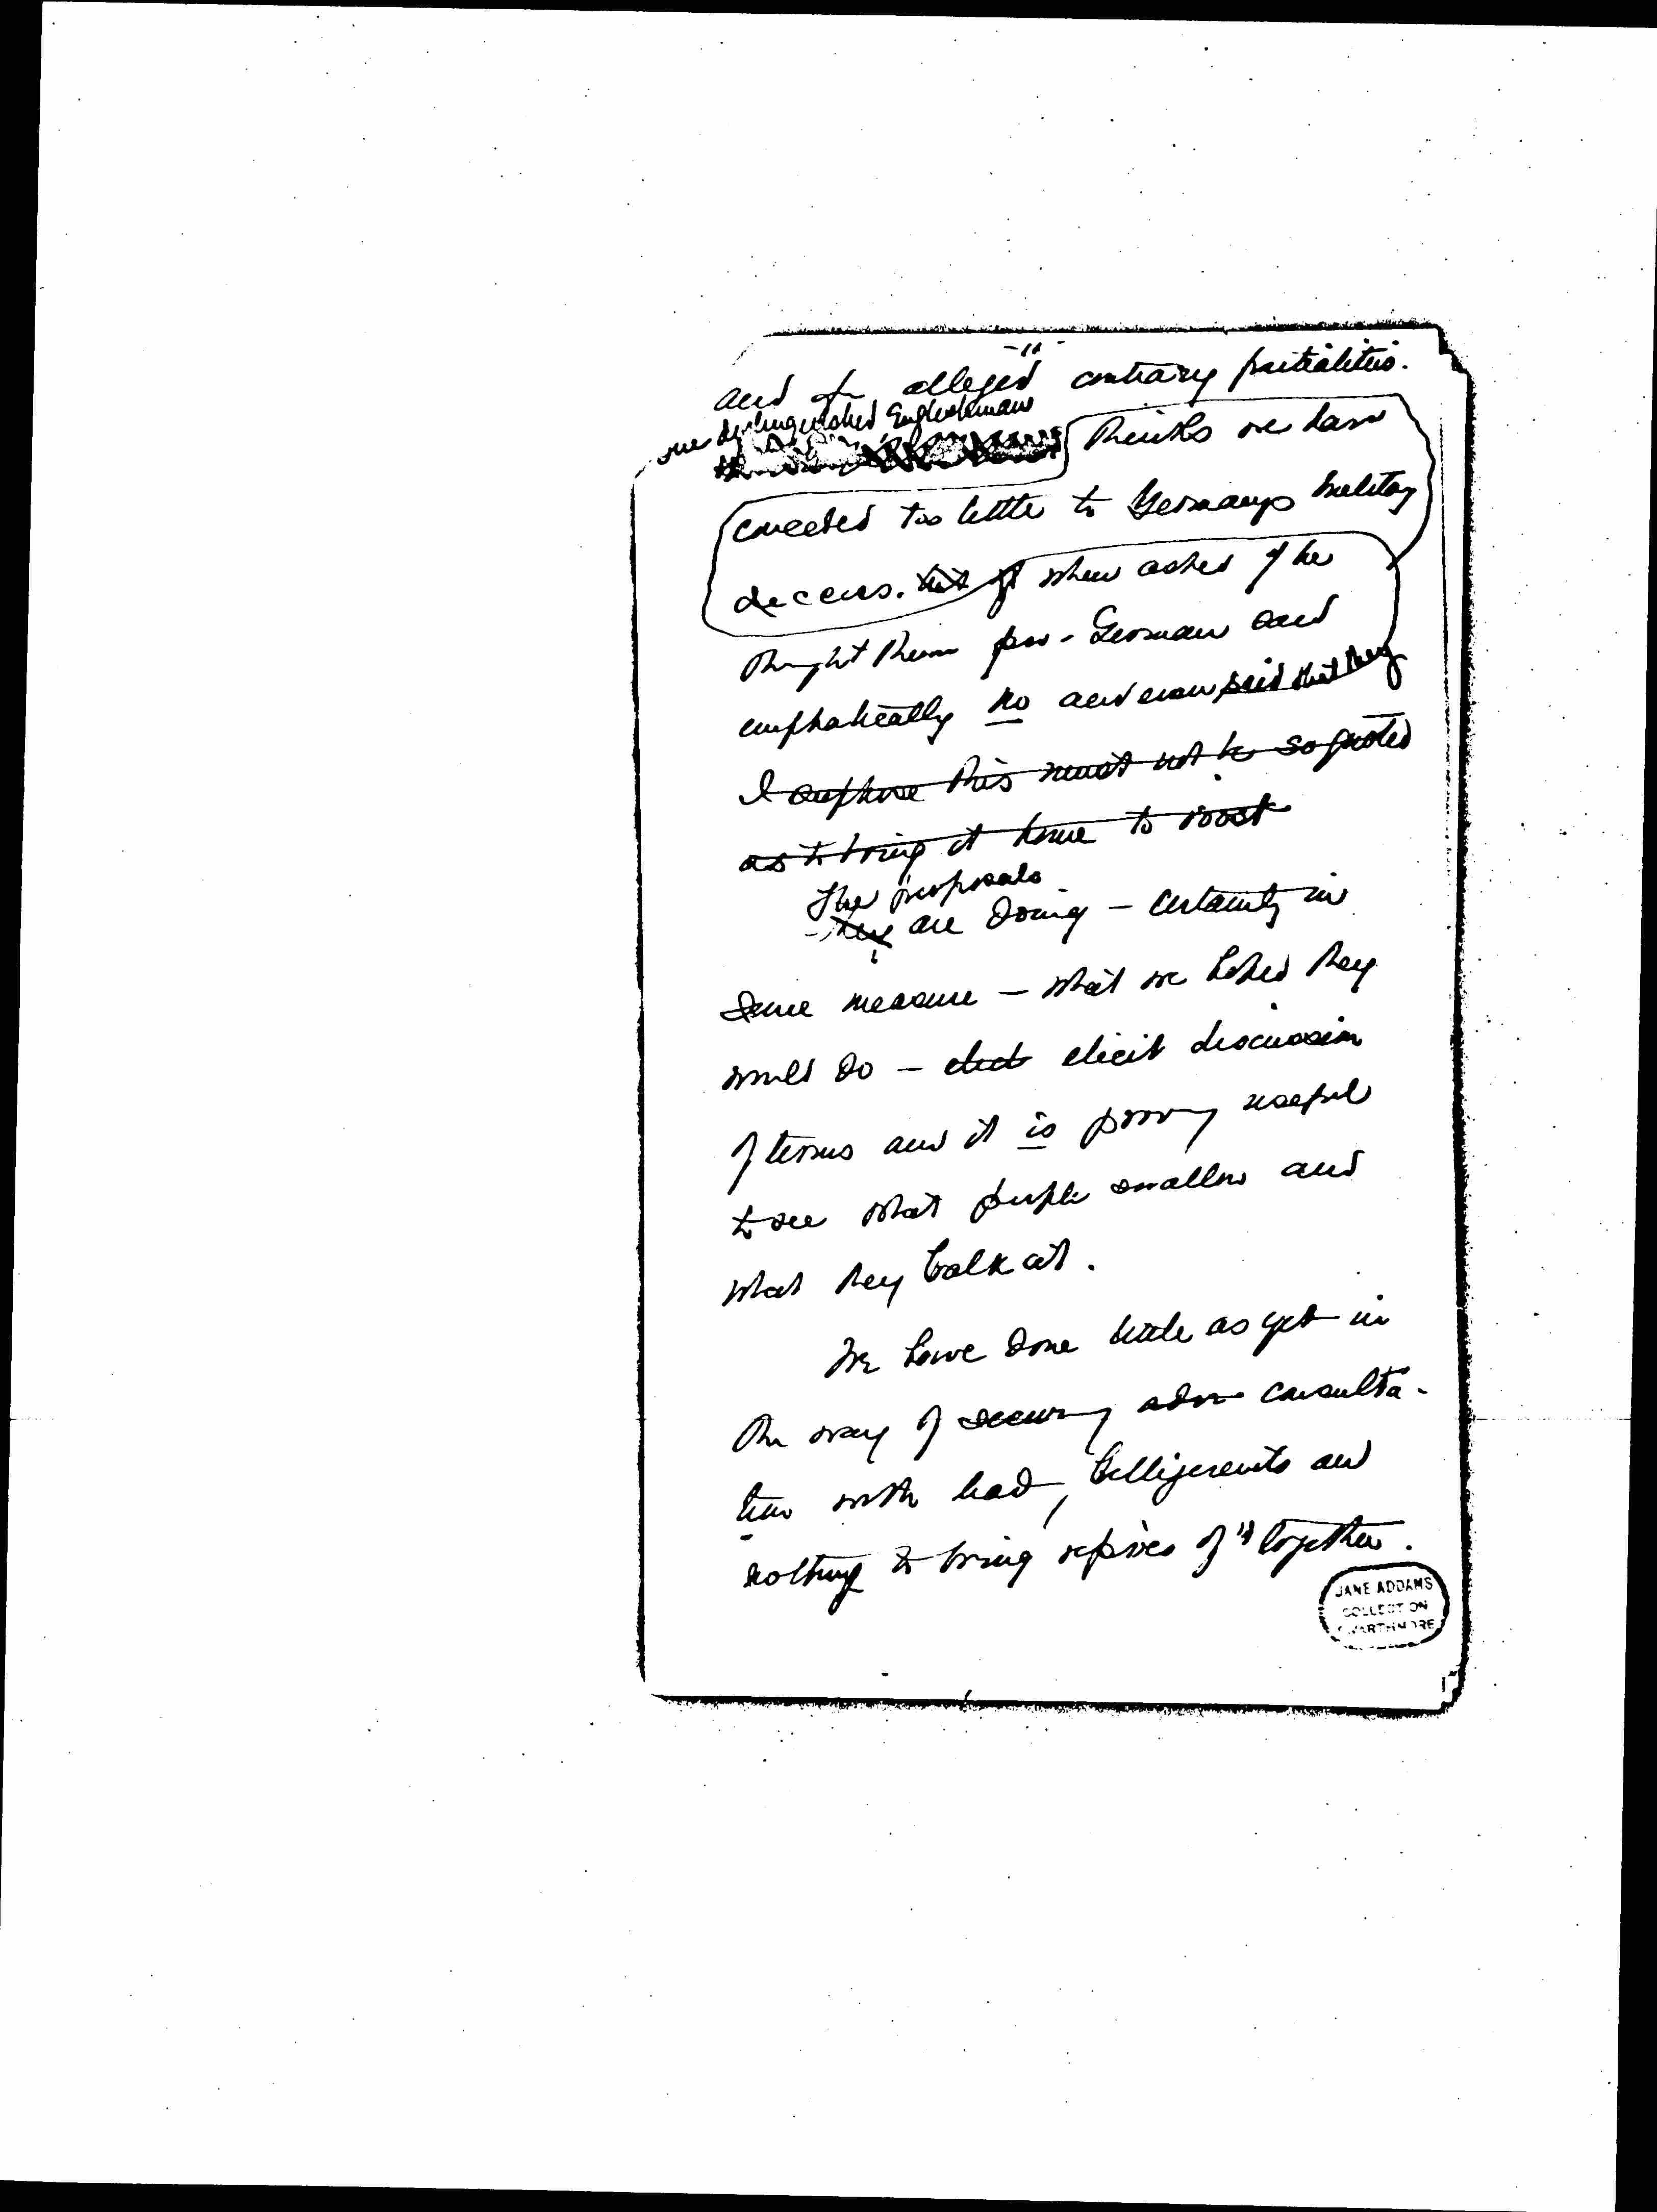 -11-
and of alleged contrary partialities.
one distinguished Englishman
thinks we have
conceded too little to Germanys military
success. but if when asked if he
thought them pro-German said
emphatically no and even said that they
I suppose this must not be so quoted
as to bring it home to roost
The proposals
- they are doing - certainly in
some measure - what we hoped they
would do - elict elicit discussion
of terms and it is proving useful
to see what people swallow and
what they balk at.
We have done little as yet in
the way of securing adv consulta-
tion with leadg belligerents and
nothing to bring repsves of " together.
JANE ADDAMS
COLLECTION
SWARTHMORE